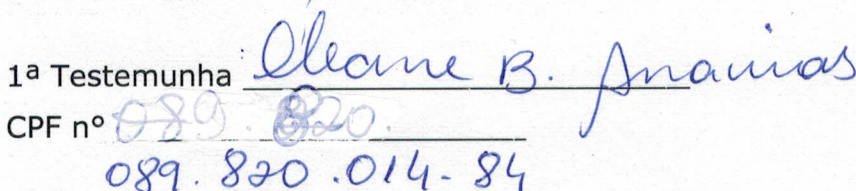 1ª Testemunha Cleane B. Ananias
CPF nº 089. 820.
089. 820 .014-84